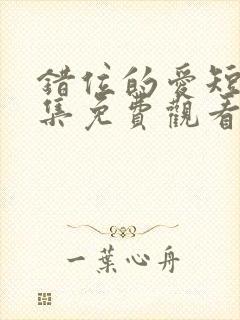 錯位的愛短
集免費觀看
一葉心舟